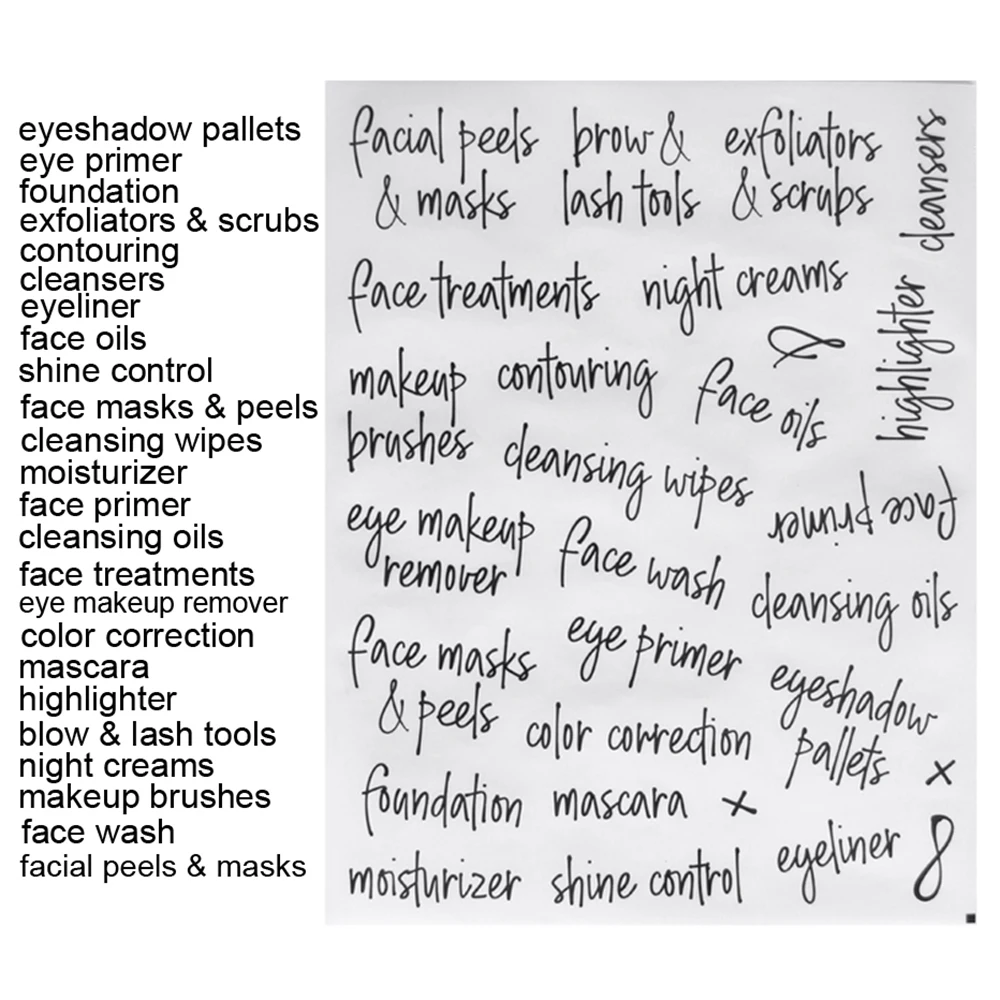 eyeshadow pallets
eye primer
foundation
exfoliators & scrubs
contouring
cleansers
eyeliner
face oils
shine control
face masks & peels
cleansing wipes
moisturizer
face primer
cleansing oils
face treatments
eye makeup remover
color correction
mascara
highlighter
blow & lash tools
night creams
makeup brushes
face wash
facial peels & masks
facial peels
& masks
brow &
lash tools
exfoliators
& scrubs
cleansers
face treatments
night creams
highlighter
makeup
brushes
contouring
face oils
cleansing wipes
face primer
eye makeup
remover
face wash
cleansing oils
face masks
& peels
eye primer
eyeshadow
pallets
color correction
foundation
mascara
moisturizer
shine control
eyeliner